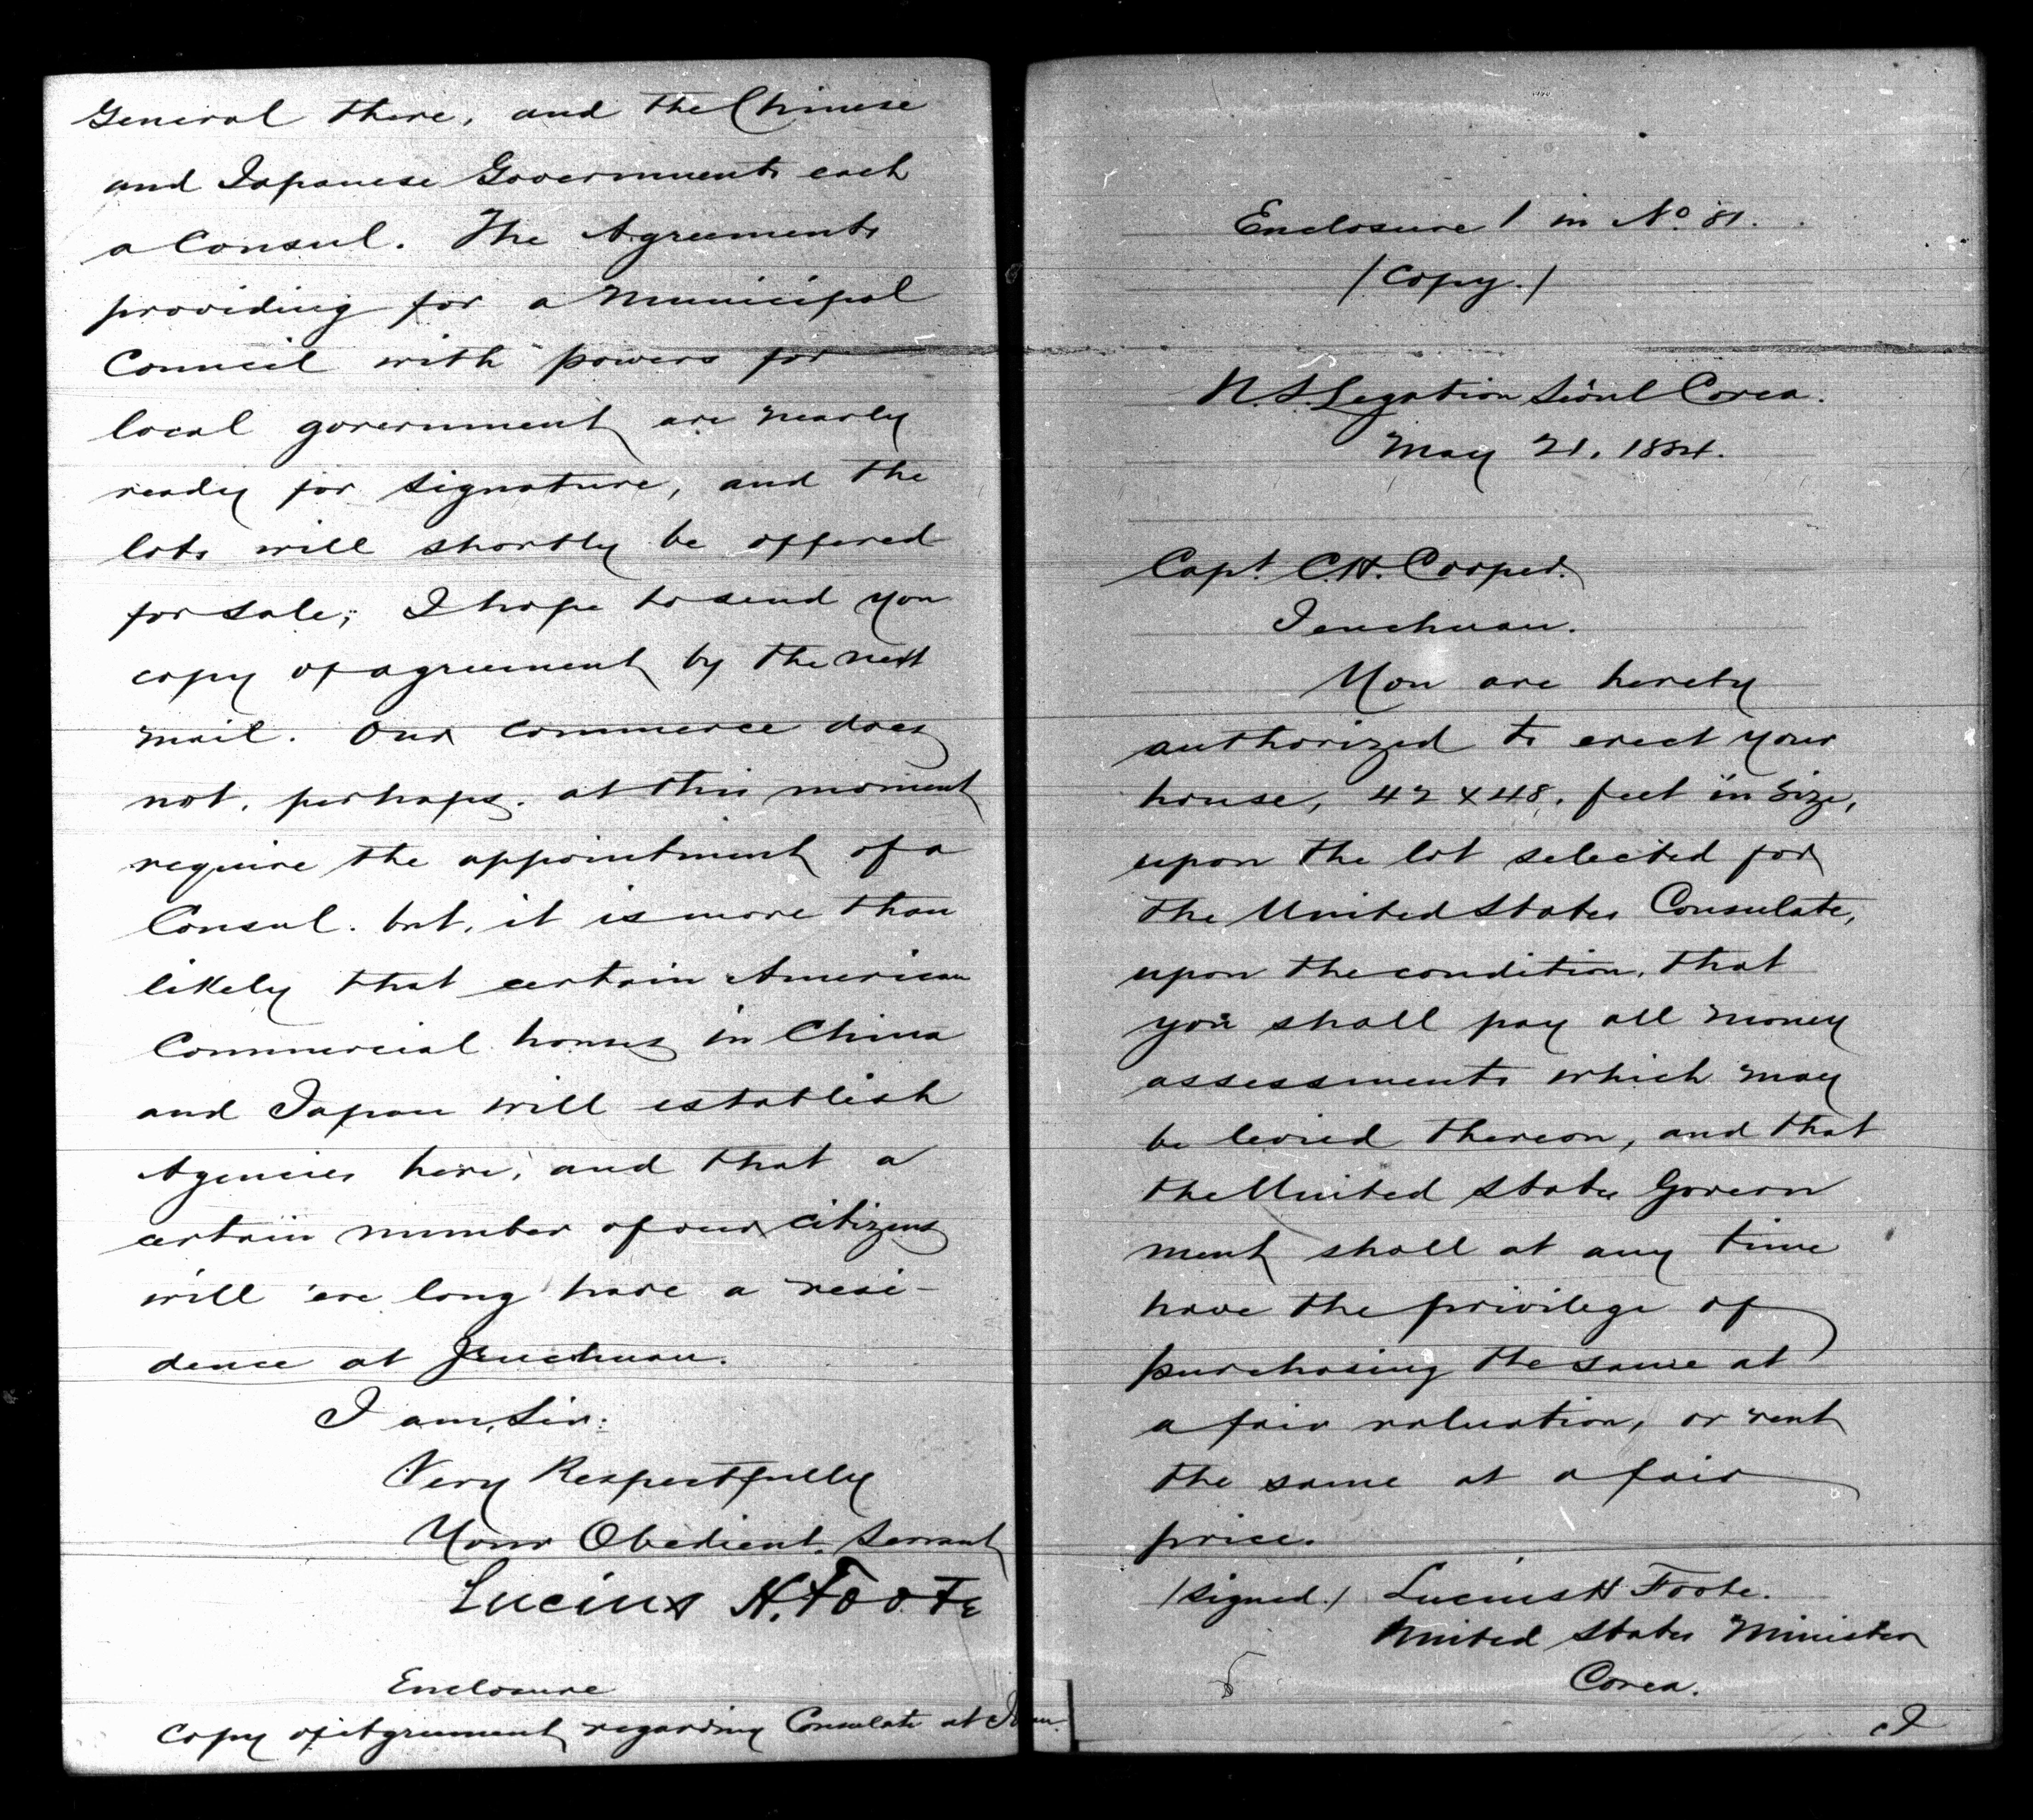 General there, and the Chinese
and Japanese Governments each
a Consul. The Agreements
providing for a Municipal
Council with powers for
local government are nearly
ready for signature, and the
lots will shortly be offered
for sale; I hope to send you
copy of agreement by the next
mail. Our Commerce does
not, perhaps, at this moment
require the appointment of a
Consul. but, it is more than
likely that certain American
Commercial houses in China
and Japan will establish
Agencies here, and that a
certain number of our citizens
will 'ere long have a resi-
dence at Jenchuan.
I am, Sir:
Very Respectfully
Your Obedient Servant
Lucius H. Foote
Enclosure
Copy of Agreement regarding Consulate at
Enclosure 1 in No. 81.
/Copy./
U.S. Legation Seoul Corea.
May 21, 1884.
Capt. C.H. Cooper.
Jenchuan.
You are hereby
authorized to erect your
house, 42 x 48, feet in size,
upon the lot selected for
the United States Consulate,
upon the condition, that
you shall pay all money
assessments which may
be levied thereon, and that
the United States Govern
ment shall at any time
have the privilege of
purchasing the same at
a fair valuation, or rent
the same at a fair
price.
/signed./ Lucius H Foote.
United States Minister
Corea.